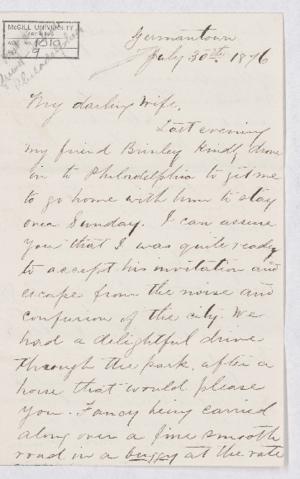 McGILL UNIVERSITY
ACC. NO. 1819
REF. 9
Germantown
July 30th 1876
My darling Wife,
Last evening
my friend Brinley drove
in to Philadelphia to get me
to go home with him to stay
over Sunday. I can assure
you that I was quite ready
to accept his invitation and
escape from the noise and
confusion of the city. We
had a delightful drive
through the park, after a
horse that would please
you. Fancy being carried
along over a fine smooth
road in a buggy at the rate